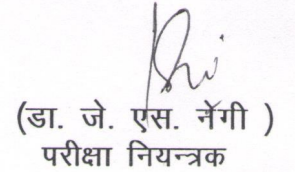 (डा. जे. एस. नेगी )
परीक्षा नियन्त्रक